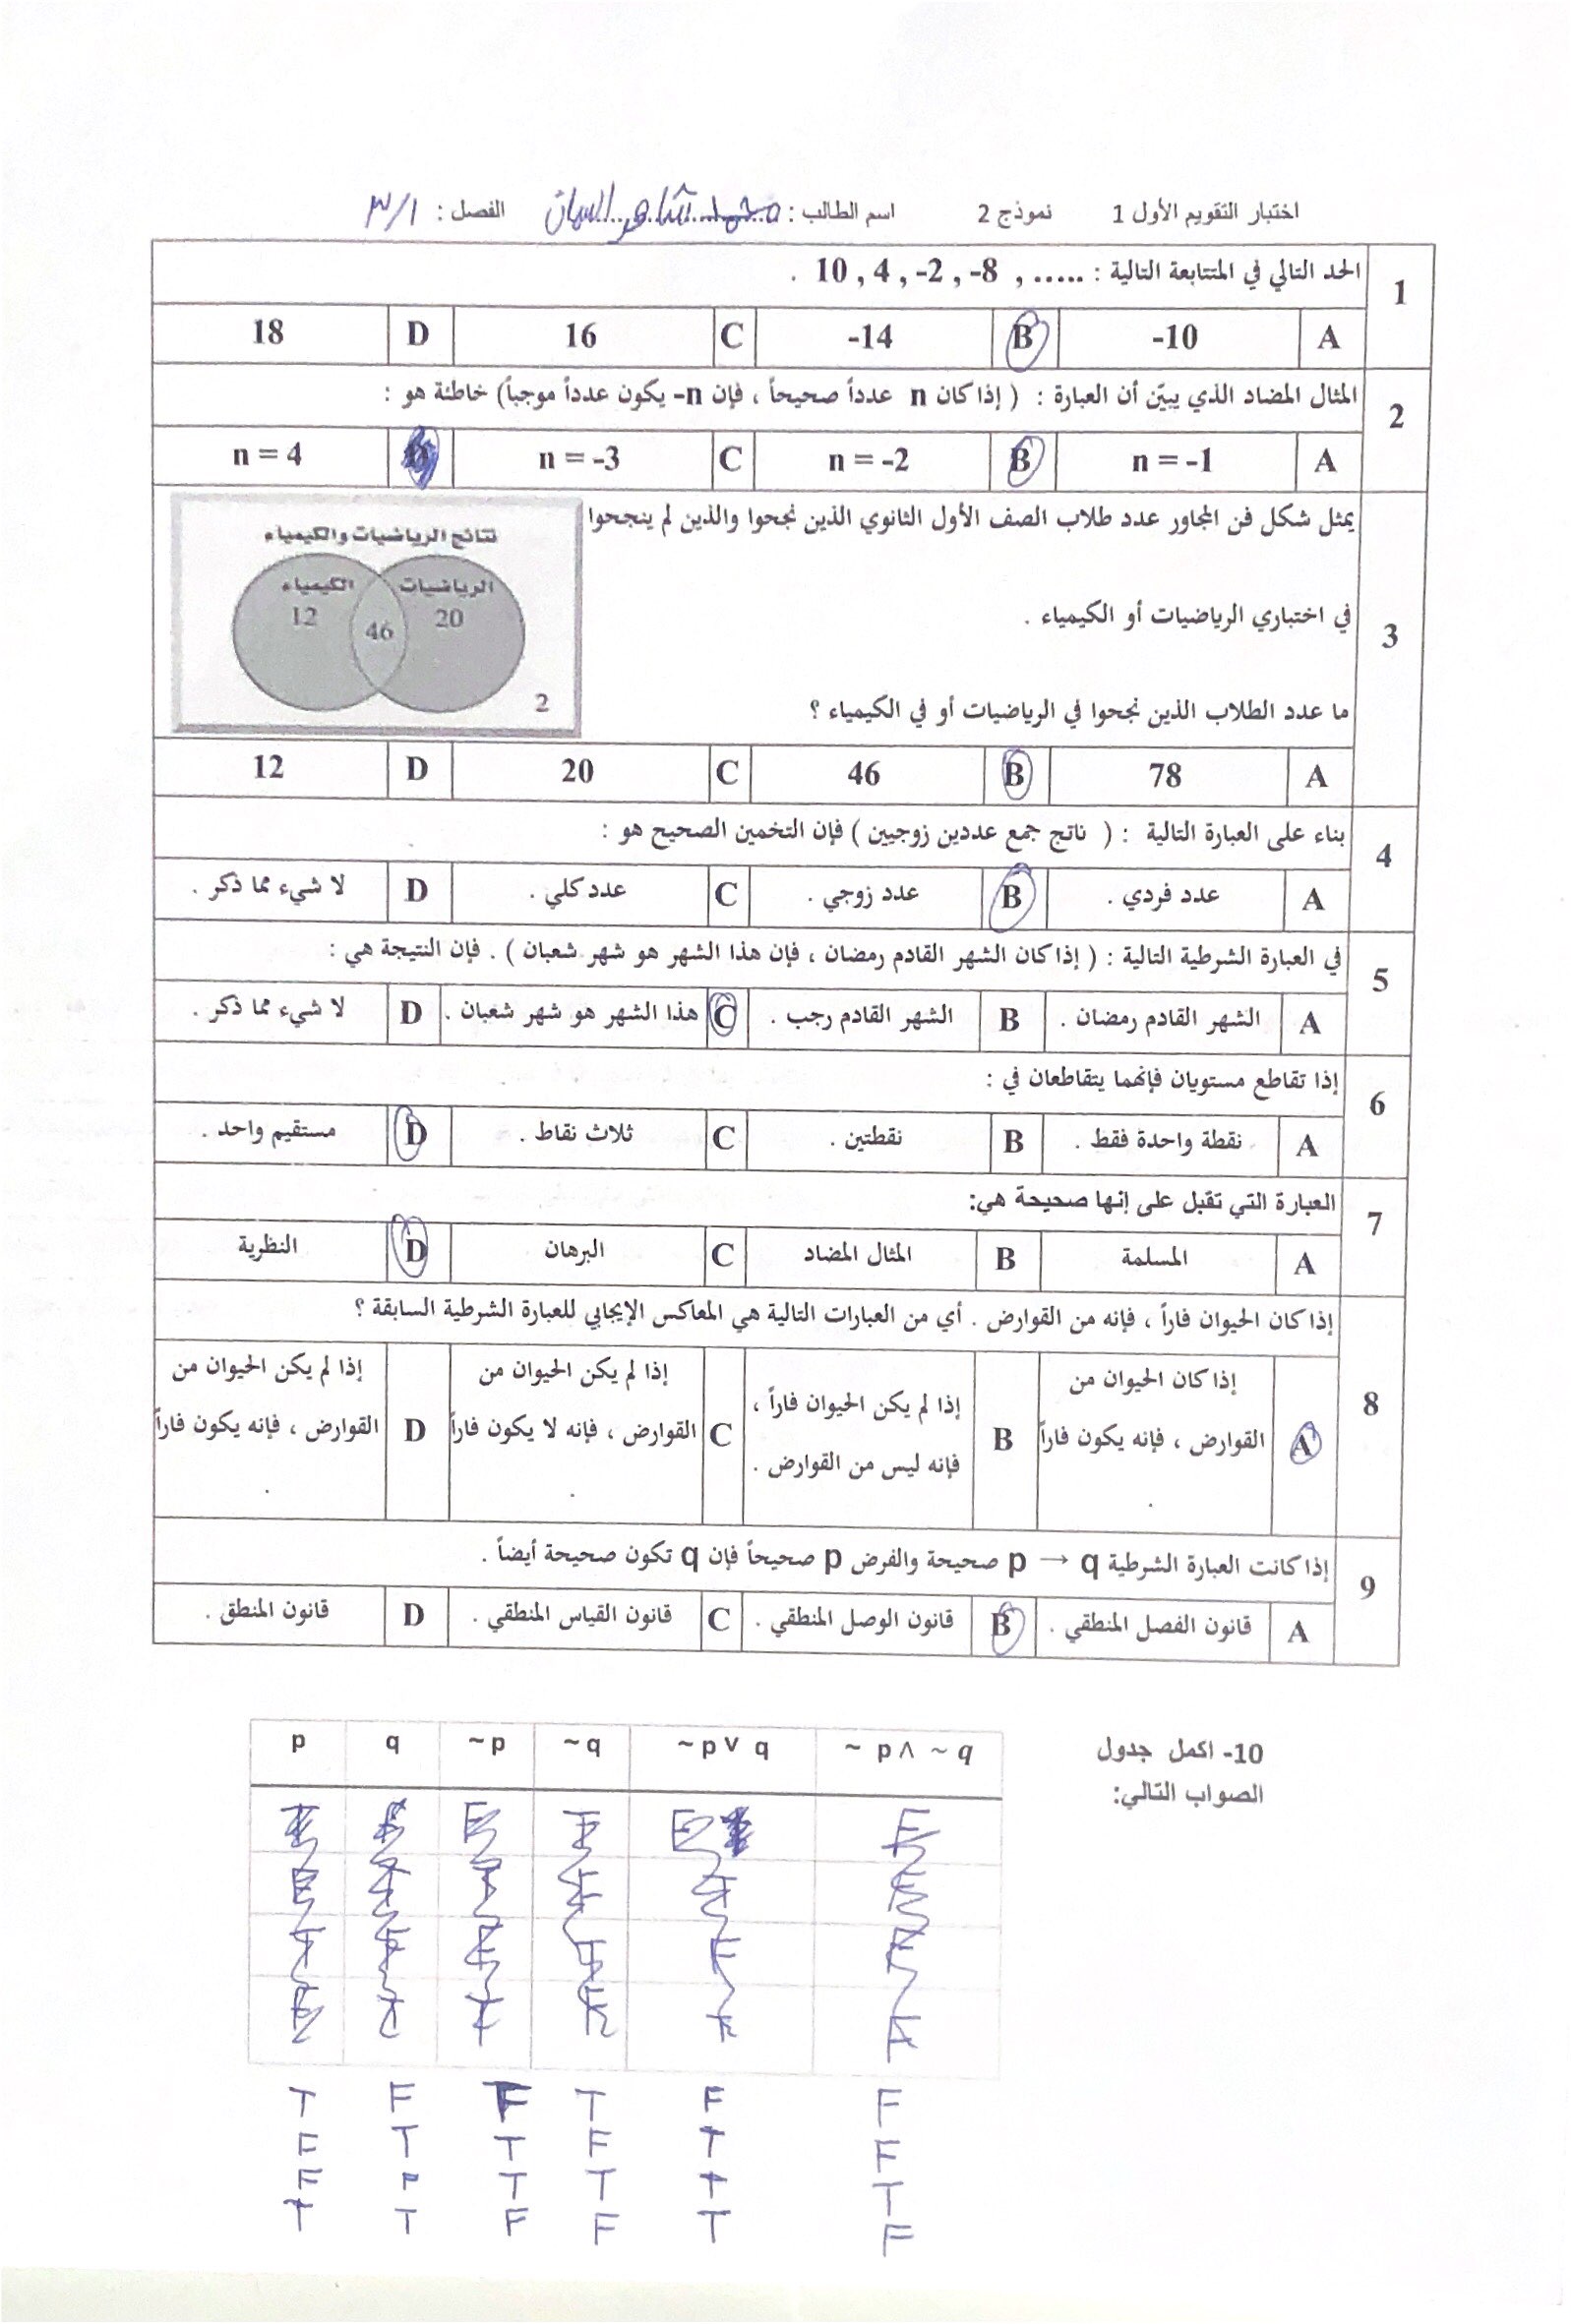 اختبار التقويم الأول 1 نموذج 2 اسم الطالب : محمد شاهر السمان الفصل : ٣/١
1 الحد التالي في المتتابعة التالية : ..... , 10 , 4 , -2 , -8 .
A -10 B -14 C 16 D 18
2 المثال المضاد الذي يبيّن أن العبارة : ( إذا كان n عدداً صحيحاً ، فإن n- يكون عدداً موجباً) خاطئة هو :
A n = -1 B n = -2 C n = -3 D n = 4
3 يمثل شكل فن المجاور عدد طلاب الصف الأول الثانوي الذين نجحوا والذين لم ينجحوا
في اختباري الرياضيات أو الكيمياء .
ما عدد الطلاب الذين نجحوا في الرياضيات أو في الكيمياء ؟
نتائج الرياضيات والكيمياء
الرياضيات الكيمياء
20 46 12
2
A 78 B 46 C 20 D 12
4 بناء على العبارة التالية : ( ناتج جمع عددين زوجيين ) فإن التخمين الصحيح هو :
A عدد فردي . B عدد زوجي . C عدد كلي . D لا شيء مما ذكر .
5 في العبارة الشرطية التالية : ( إذا كان الشهر القادم رمضان ، فإن هذا الشهر هو شهر شعبان ) . فإن النتيجة هي :
A الشهر القادم رمضان . B الشهر القادم رجب . C هذا الشهر هو شهر شعبان . D لا شيء مما ذكر .
6 إذا تقاطع مستويان فإنهما يتقاطعان في :
A نقطة واحدة فقط . B نقطتين . C ثلاث نقاط . D مستقيم واحد .
7 العبارة التي تقبل على إنها صحيحة هي:
A المسلمة B المثال المضاد C البرهان D النظرية
8 إذا كان الحيوان فاراً ، فإنه من القوارض . أي من العبارات التالية هي المعاكس الإيجابي للعبارة الشرطية السابقة ؟
A إذا كان الحيوان من
القوارض ، فإنه يكون فاراً
.
B إذا لم يكن الحيوان فاراً ،
فإنه ليس من القوارض .
C إذا لم يكن الحيوان من
القوارض ، فإنه لا يكون فاراً
.
D إذا لم يكن الحيوان من
القوارض ، فإنه يكون فاراً
.
9 إذا كانت العبارة الشرطية p → q صحيحة والفرض p صحيحاً فإن q تكون صحيحة أيضاً .
A قانون الفصل المنطقي . B قانون الوصل المنطقي . C قانون القياس المنطقي . D قانون المنطق .
10- اكمل جدول
الصواب التالي:
p q ~p ~q ~p ∨ q ~ p ∧ ~ q
T F F T F F
F T T F T F
F F T T T T
T T F F T F